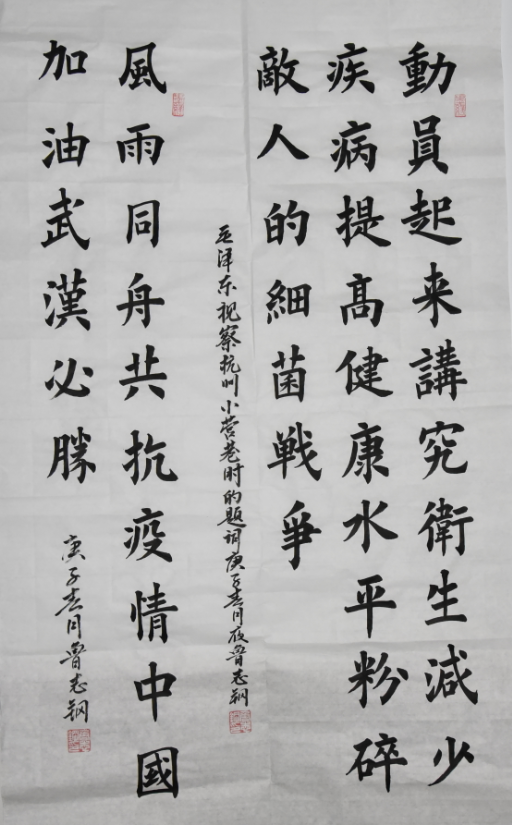 動員起来講究衛生減少
疾病提高健康水平粉碎
敵人的細菌戦爭
毛泽东视察杭州小营巷时的题词庚子春月夜鲁志钢
風雨同舟共抗疫情中國
加油武漢必勝
庚子春月鲁志钢